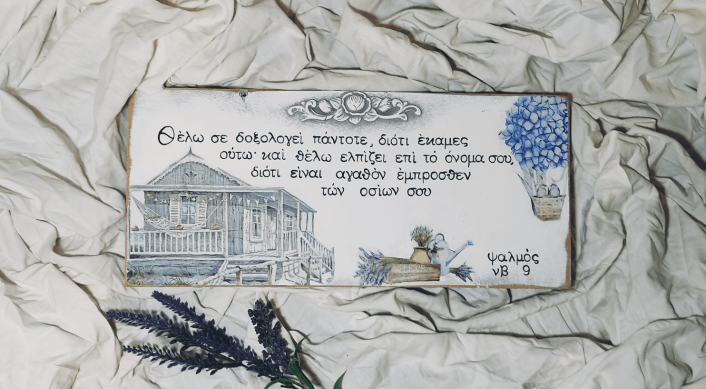 Θέλω σε δοξολογεὶ πάντοτε, διότι ἔκαμες
οὕτω· καὶ θέλω ελπίζει επὶ τό όνομα σου,
διότι εἶναι αγαθόν ἔμπροσθεν
τῶν οσίων σου
ψαλμός
νβ 9